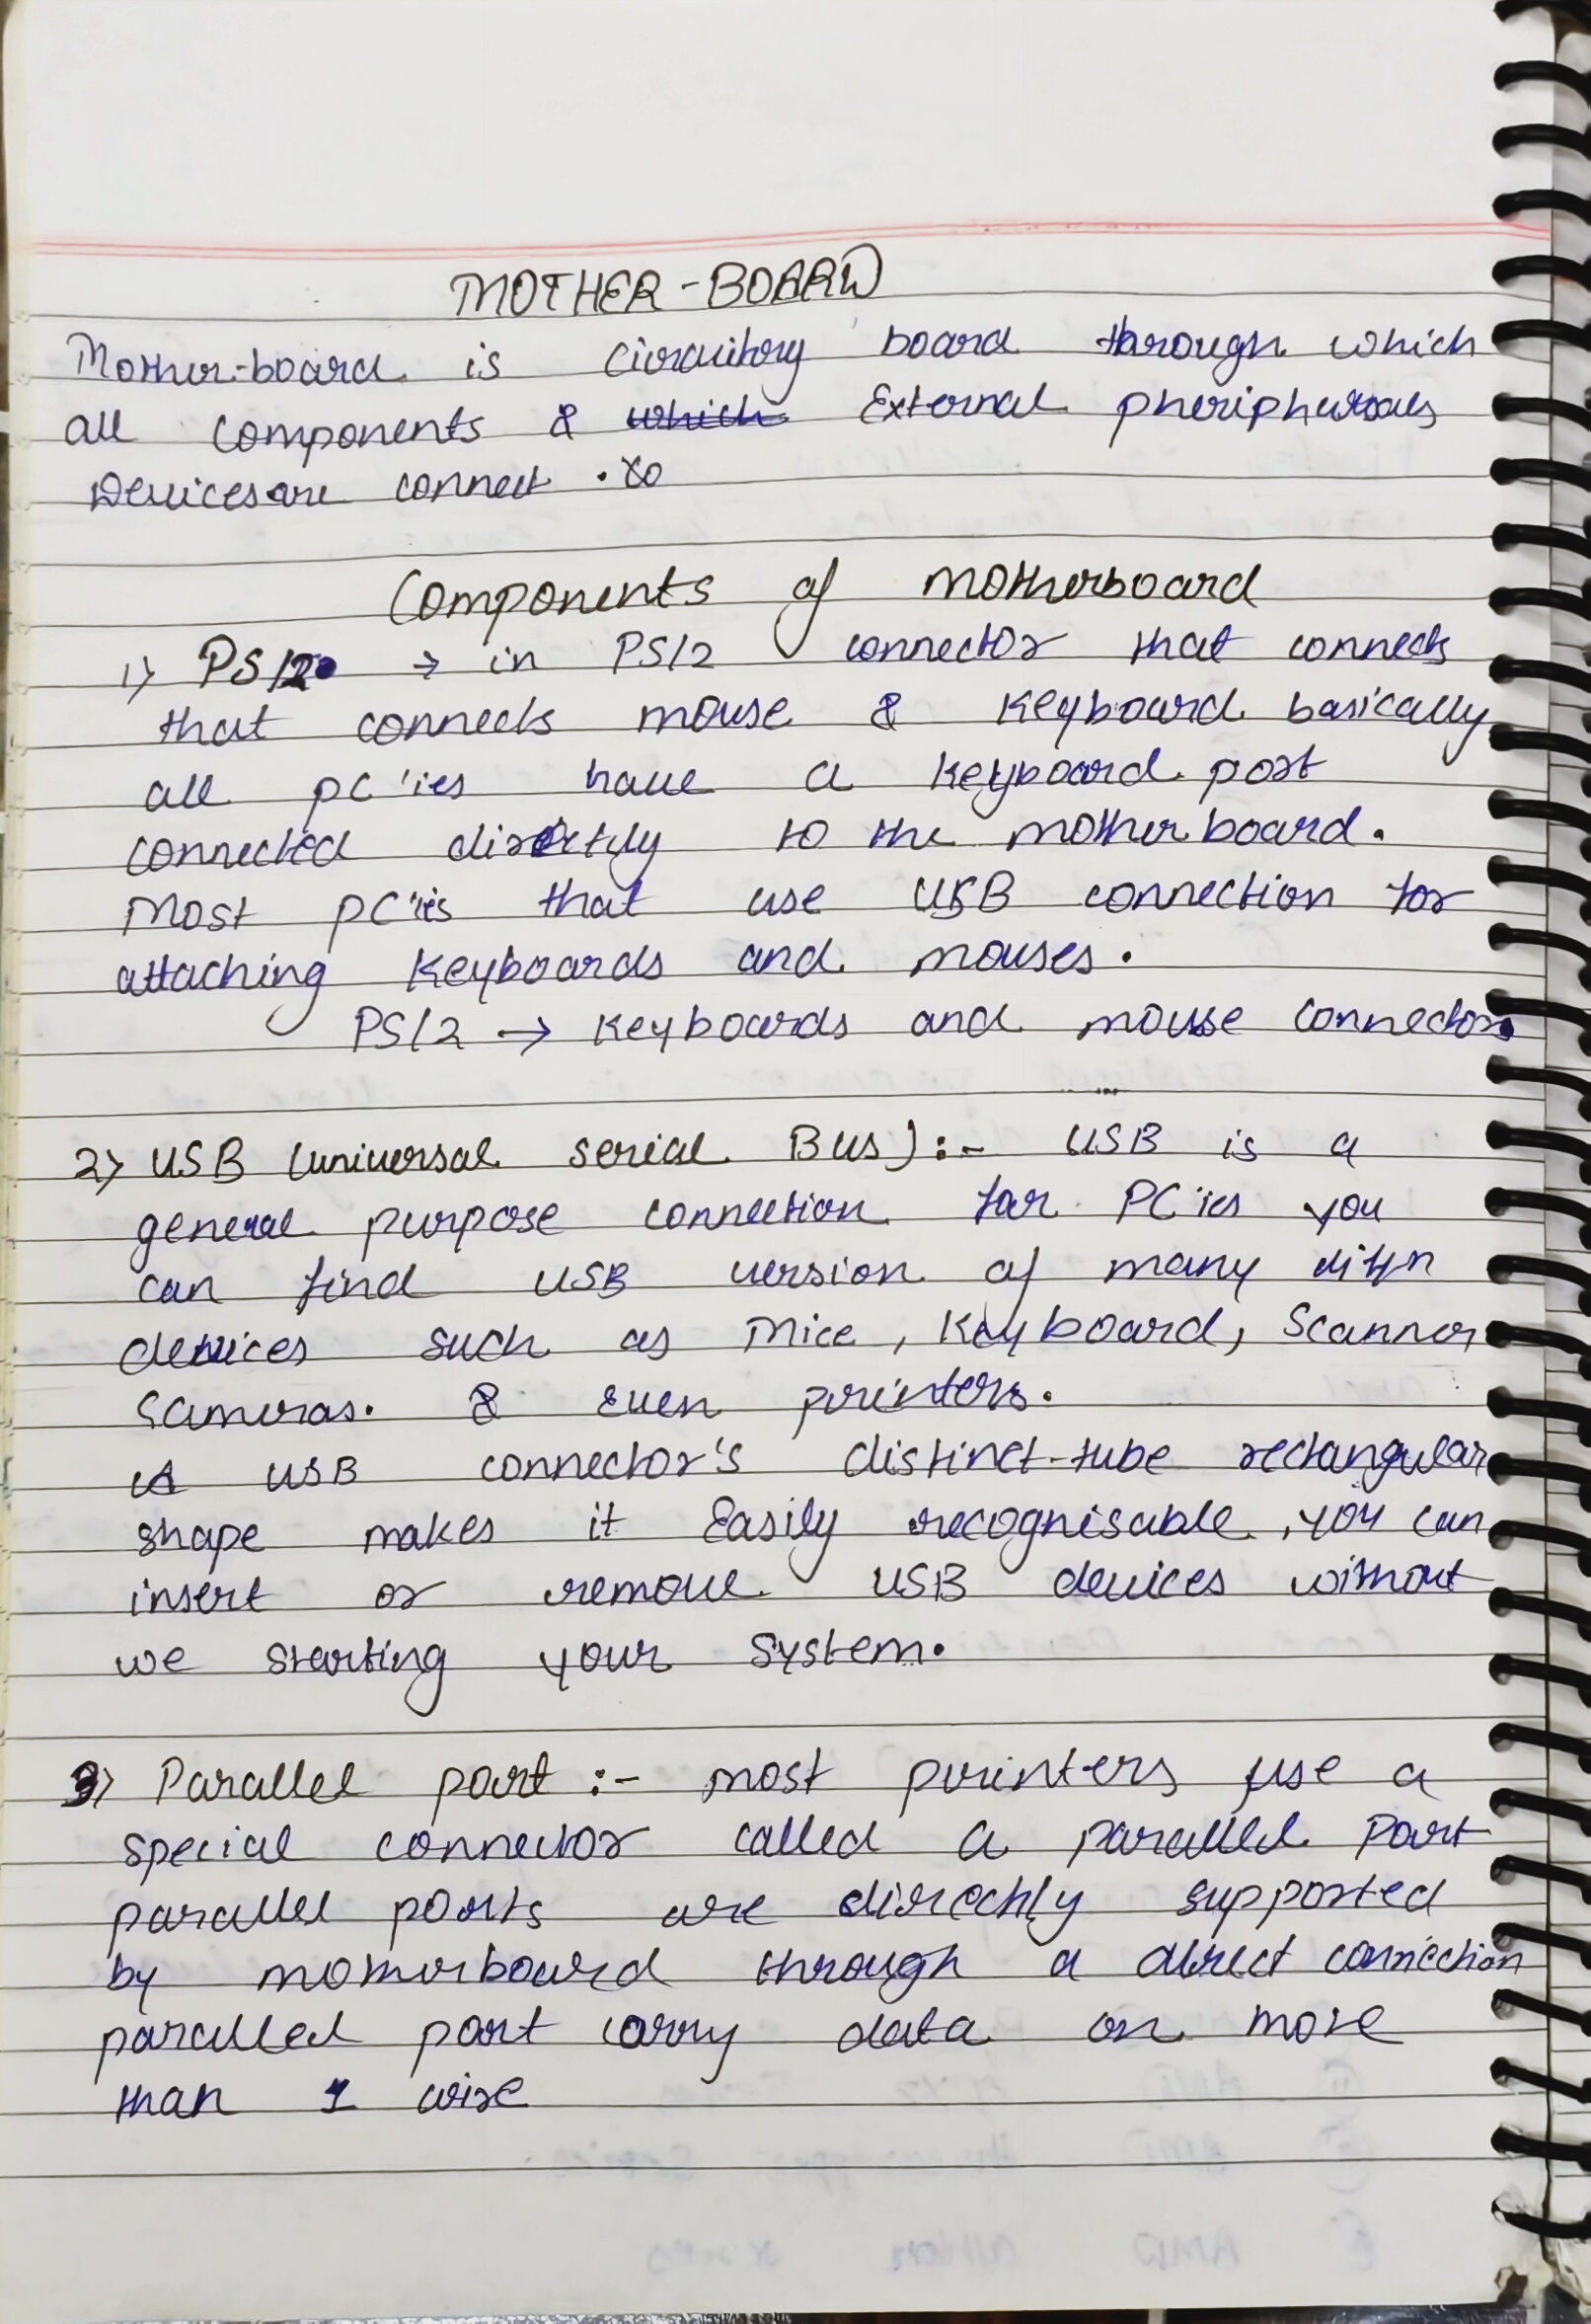 MOTHER-BOARD
Mother-board is Circuitory board through which
all components & which External pheripherals
Devices are connect .
Components of Motherboard
1) PS/2 → in PS/2 connector that connects
that connects mouse & keyboard basically
all pc'ies have a keyboard port
connected directly to the motherboard.
Most pc'ies that use USB connection for
attaching keyboards and mouses.
PS/2 → keyboards and mouse connectors
2) USB (universal serial Bus) :- USB is a
general purpose connection for PC'ies you
can find USB version of many diffn
devices such as Mice, Keyboard, Scanner
Cameras. & Even printers.
A USB connector's distinct-tube rectangular
shape makes it Easily recognisable, you can
insert or remove USB devices without
we starting your system.
3) Parallel port :- most printers use a
special connector called a parallel Port
parallel ports are directly supported
by motherboard through a direct connection
parallel port carry data on more
than 1 wire